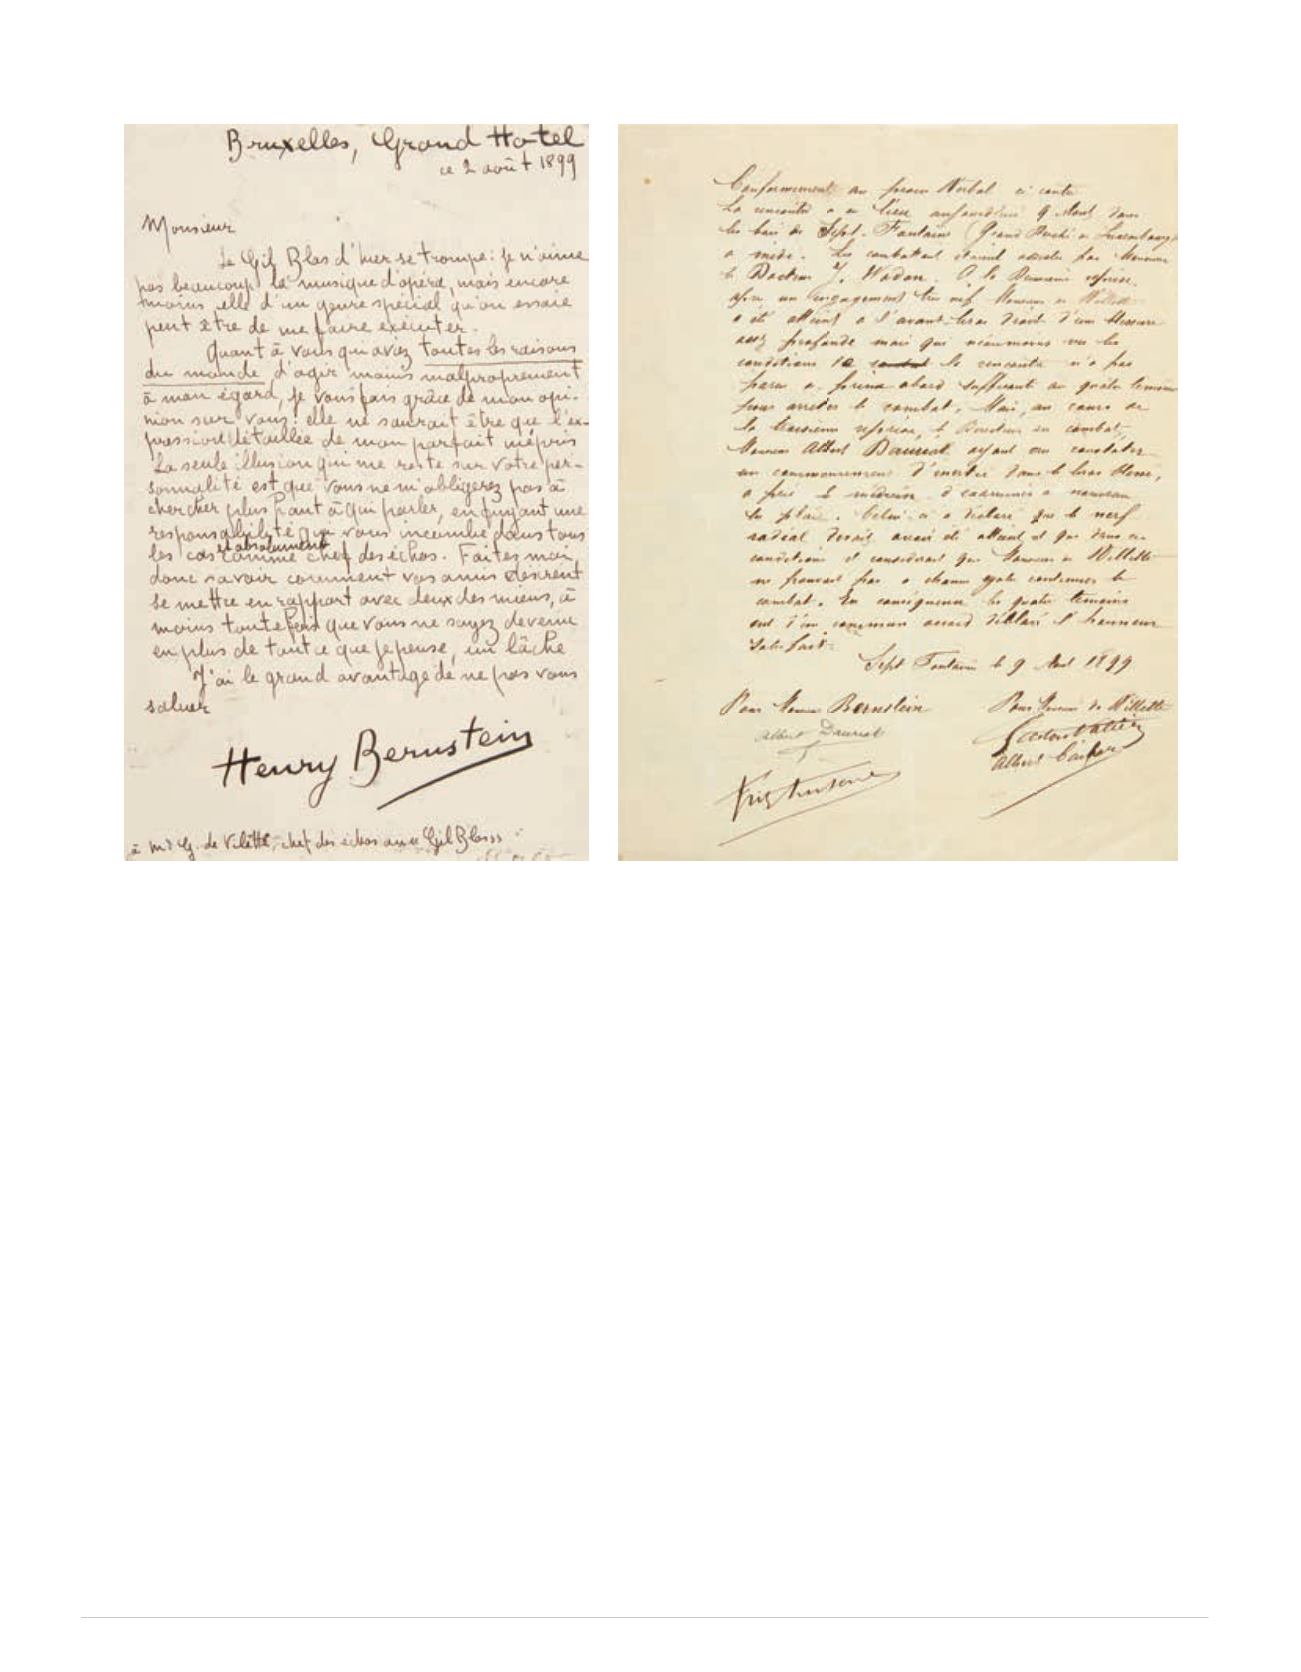 Bruxelles, Grand Hotel
ce 2 août 1899
Monsieur
Le Gil Blas d'hier se trompe : je n'aime
pas beaucoup la musique d'opéra, mais encore
moins elle d'un genre spécial qu'on essaie
peut être de me faire exécuter.
Quant à vous qui aviez toutes les raisons
du monde d'agir moins malproprement
à mon égard, je vous fais grâce de mon opi-
nion sur vous : elle ne saurait être que l'ex-
pression détaillée de mon parfait mépris
La seule illusion qui me reste sur votre per-
sonnalité est que vous ne m'obligerez pas à
chercher plus haut à qui parler, en fuyant une
responsabilité qui vous incombe dans tous
et absolument
les cas comme chef des échos. Faites moi
donc savoir comment vos amis désirent
se mettre en rapport avec deux des miens, à
moins toutefois que vous ne soyez devenu
en plus de tout ce que je pense, un lâche
J'ai le grand avantage de ne pas vous
saluer
Henry Bernstein
à Mr G. de Vilette, chef des échos au Gil Blas
Conformément au procès Verbal ci contre
La rencontre a eu lieu aujourd'hui 9 Aout dans
les bois de Sept. Fontaines (Grand Duché de Luxembourg)
a midi. Les combattants étaient assistés par Monsieur
le Docteur J. Wadon. A la reprise,
après un engagement très vif Monsieur de Villette
a été atteint a l'avant-bras droit d'une blessure
assez profonde mais qui néanmoins vu les
conditions de combat la rencontre n'a pas
paru a prima abord suffisante au quatre témoins
pour arrêter le combat. Mais, au cours de
la troisième reprise, le Directeur du combat,
Monsieur Albert Dauriat, ayant cru constater
un commencement d'inertie dans le bras blessé,
a prié le médecin d'examiner a nouveau
la plaie. Celui ci a déclaré que le nerf
radial devait avoir été atteint et que dans ces
conditions il considérait que Monsieur de Villette
ne pouvait pas a chance égale continuer le
combat. En conséquence les quatre témoins
ont d'un commun accord déclaré l'honneur
satisfait.
Sept Fontaines le 9 Aout 1899
Pour Monsieur Bernstein
Pour Monsieur de Villette
Albert Dauriat
Albert